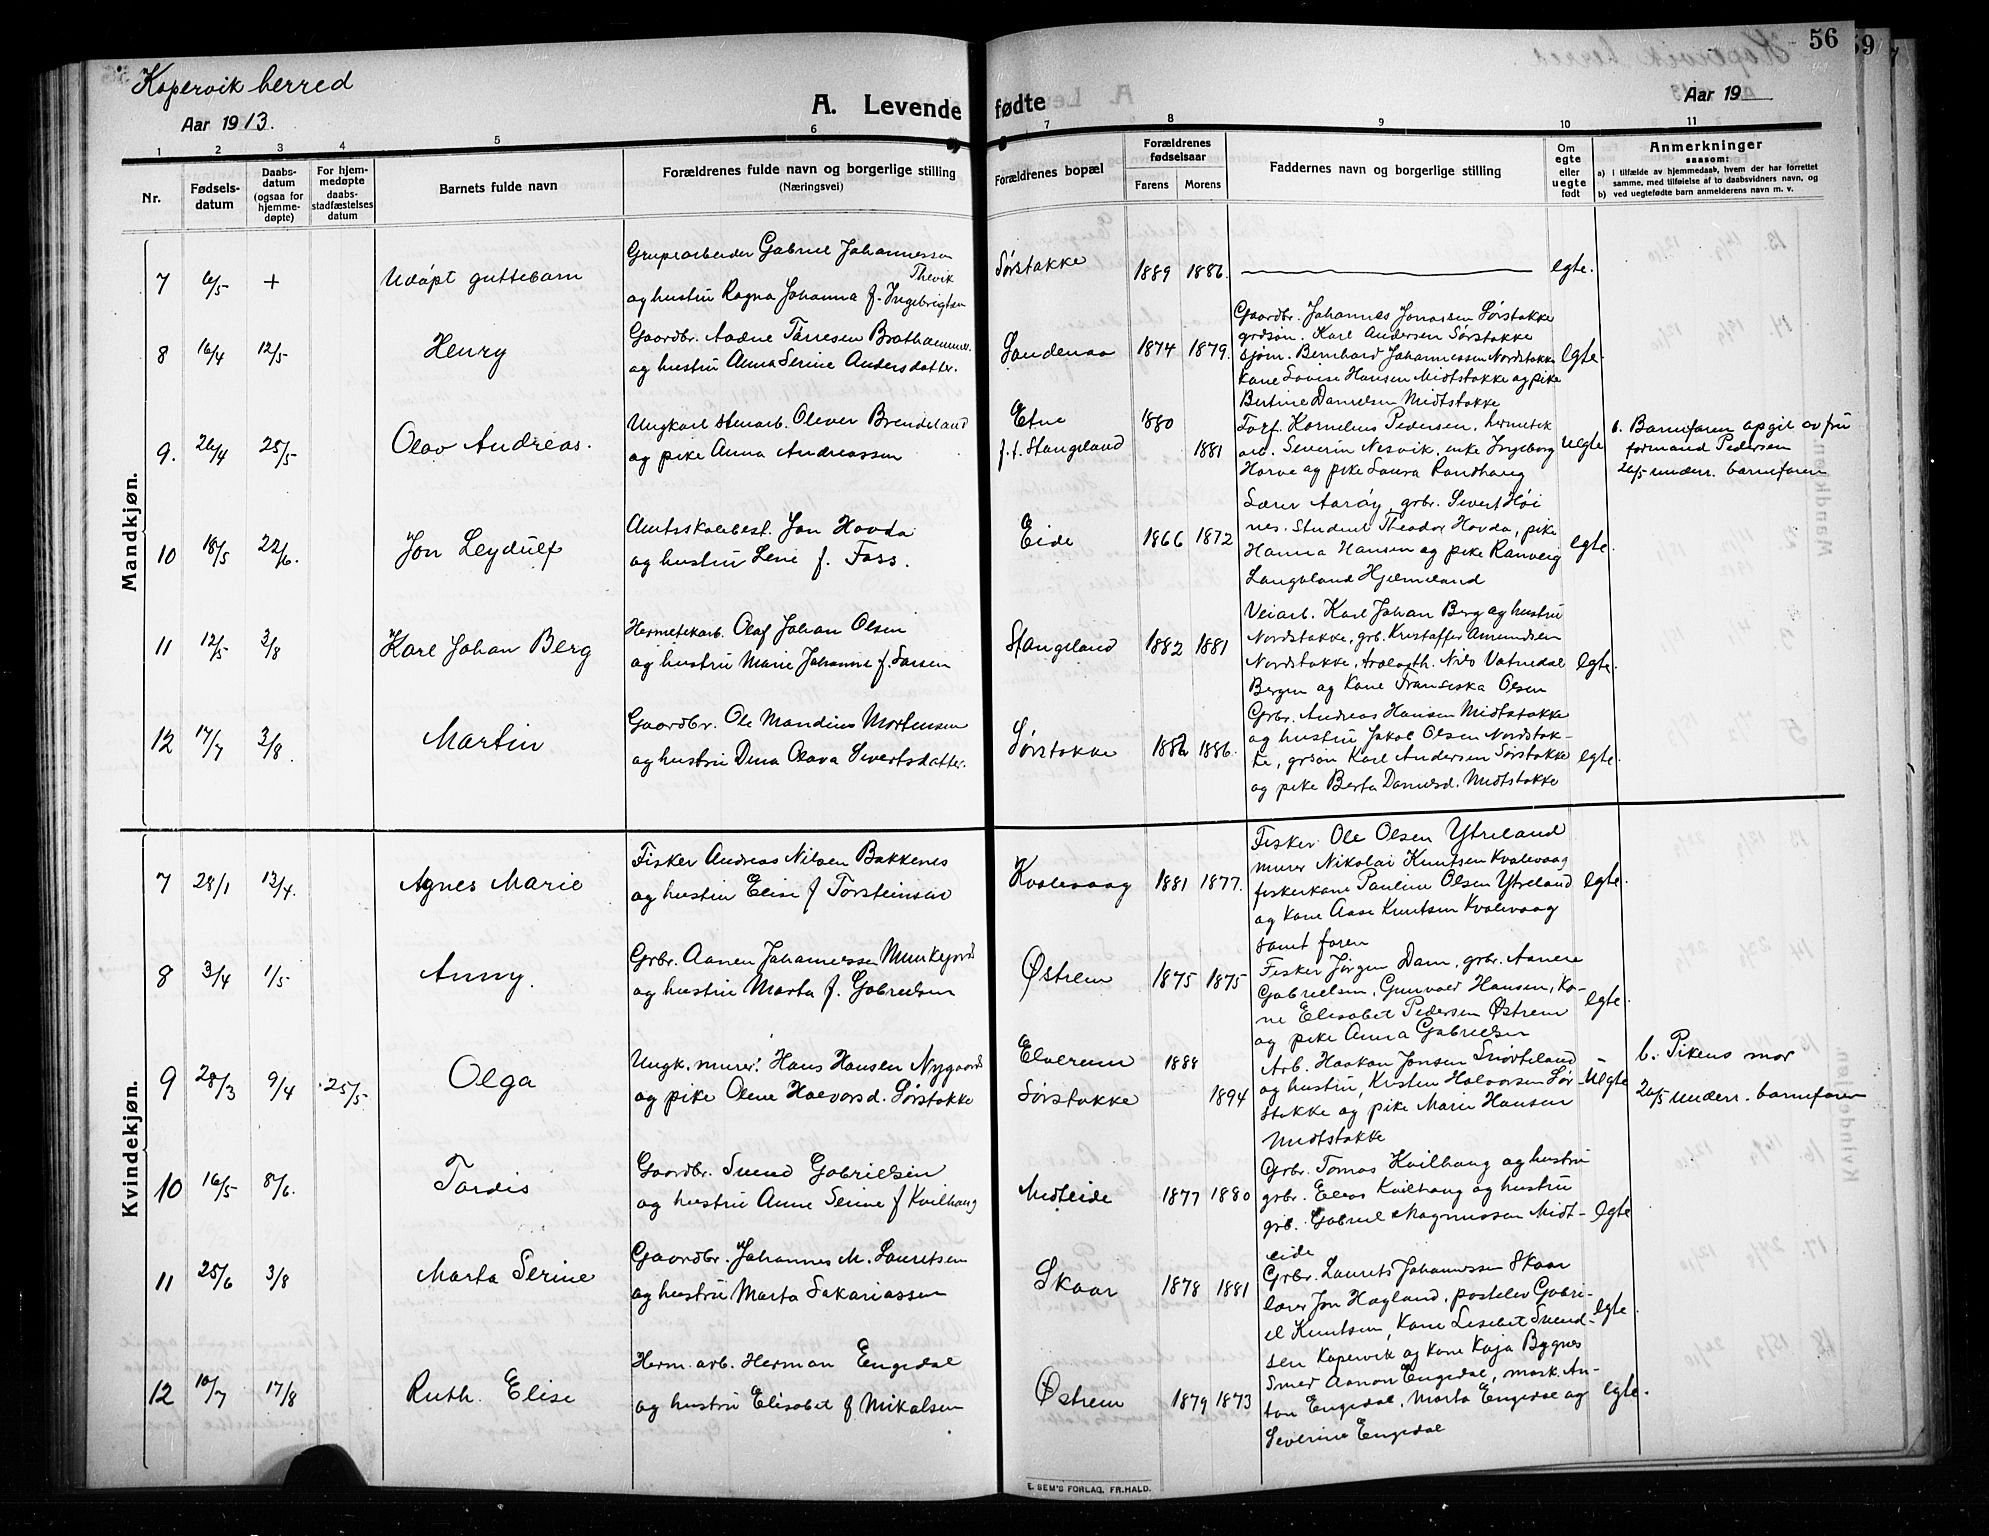 56
59
Kopervik herred
Aar 1913.
A. Levende fødte
Aar 19
1 2 3 4 5 6 7 8 9 10 11
Nr.
Fødsels-
datum
Daabs-
datum
(ogsaa for
hjemme-
døpte)
For hjem-
medøpte
daabs-
stadfæstelses
datum
Barnets fulde navn
Forældrenes fulde navn og borgerlige stilling
(Næringsvei)
Forældrenes bopæl
Forældrenes
fødselsaar
Farens Morens
Faddernes navn og borgerlige stilling
Om
egte
eller
uegte
født
Anmerkninger
saasom:
a) i tilfælde av hjemmedaab, hvem der har forrettet
samme, med tilføielse af to daabsvidners navn, og
b) ved uegtefødte barn anmelderens navn m. v.
Mandkjøn.
7 6/5 + Udøpt guttebarn
Grupearbeider Gabriel Johannessen
Thevik
og hustru Ragna Johanna f. Ingebrigtsen
Sørstokke 1889 1886. egte.
8 16/4 12/5 Henry
Gaardbr. Aadne Tørresen
og hustru Anna Serine Andersdatter.
Sandenaa 1874 1879.
Gaardbr. Johannes Jonassen Sørstokke
grdsøn. Karl Andersen Sørstokke
sjøm. Bernhard Johannessen Nordstokke
kone Lovise Hansen Midtstokke og pike
Bertine Danielsen Midtstokke
egte.
9. 26/4 25/5 Olav Andreas.
Ungkarl stenarb. Oliver Brendeland
og pike Anna Andreassen
Etne 1880
f. f. Stangeland 1881
Forf. Kornelius Pedersen, hermetik
arb. Severin Nesvik, enke Ingeborg
Horve og pike Laura Randhaug
uegte
b. Barnefaren opgit av fru
formand Pedersen
26/5 underr. barnefaren
10 18/5 22/6. Jon Leydulf
Amtsskolebest. Jon Hovda
og hustru Leni f. Foss.
Eide 1866 1872
Lærer Aarøy, grbr. Sivert Høi
nes. Student Theodor Hovda, pike
Hanna Hansen og pike Ranveig
Langeland Hjelmeland
egte.
11 12/5 3/8 Karl Johan Berg
Hermetikarb. Olaf Johan Olsen
og hustru Marie Johanne f. Larsen
Stangeland 1882 1881
Veiarb. Karl Johan Berg og hustru
Nordstokke, grb. Kristoffer Amundsen
Nordstokke, Nils Vatnedal
Bergen og kone Fransiska Olsen
egte.
12 17/7 3/8. Martin
Gaardbr. Ole Mandius Mortensen
og hustru Dina Olava Sivertsdatter.
Sørstokke 1882 1886.
Grbr. Andreas Hansen Midtstokke
og hustru, Jakob Olsen Nordstok-
ke, grsøn Karl Andersen Sørstokke
og pike Berta Danielsd. Midtstokke
egte.
Kvindekjøn.
7 28/1 13/4. Agnes Marie
Fisker Andreas Nilsen Bakkenes
og hustru Elise f Torsteinsen
Kvalevaag 1881 1877.
Fisker Ole Olsen Ytreland
murer Nikolai Knutsen Kvalevaag
fiskerkone Pauline Olsen Ytreland
og kone Aase Knutsen Kvalevaag
samt faren
egte.
8 3/4 1/5 Anny.
Grbr. Aanen Johannessen Munkejord
og hustru Marta f. Gabrielsen
Østrem 1875 1875
Fisker Jørgen Dam, grbr. Aanen
Gabrielsen, Gunvald Hansen, ko-
ne Elisabet Pedersen Østrem
og pike Anna Gabrielsen
egte.
9 28/3 9/4 25/5 Olga
Ungk. murer. Hans Hansen Nygaard
og pike Olene Halvorsd. Sørstokke
Elverum 1888
Sørstokke 1894
Arb. Haakon Jonsen Snørteland
og hustru, Kristen Halvorsen Sør-
stokke og pike Marie Hansen
Midtstokke
uegte
b. Pikens mor
26/5 underr. barnefaren
10 16/5 8/6. Tordis
Gaardbr. Svend Gabrielsen
og hustru Anne Serine f Kvilhaug
Midteide 1877 1880
Grbr. Tomas Kvilhaug og hustru
grbr. Elias Kvilhaug og hustru
grb. Gabriel Magnussen Midt-
eide
egte
11 25/6 3/8 Marta Serine
Gaardbr. Johannes M. Lauritsen
og hustru Marta Sakariassen
Skaar 1878 1881
Grbr. Laurits Johannessen Skaar
lærer Jon Hagland, postelev Gabri-
el Knutsen, kone Lisebet Svend-
sen Kopervik og kone Kaja Bygnes
egte
12 10/7 17/8 Ruth Elise
Herm. arb. Herman Engedal
og hustru Elisabet f Mikalsen
Østrem 1879 1873
Smed Aanon Engedal, mask. An-
ton Engedal, Marta Engedal og
Severine Engedal
egte.
E. SEM'S FORLAG, FR.HALD.